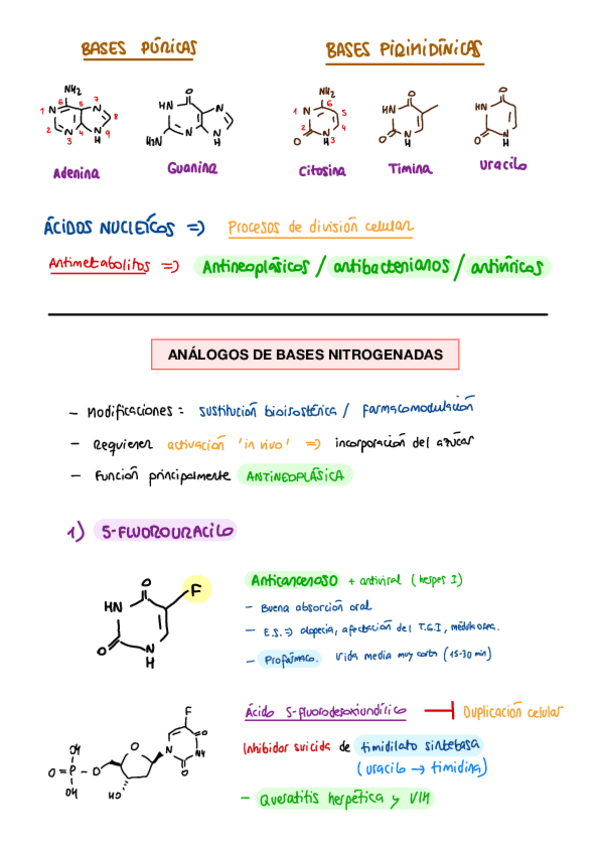 BASES PÚRICAS
BASES PIRIMIDÍNICAS
NH2
N
N
N
N
H
1 2 3 4 5 6 7 8 9
Adenina
O
HN
H2N
N
N
N
H
Guanina
NH2
N
O
N
H
1 2 3 4 5 6
Citosina
O
HN
O
N
H
Timina
O
HN
O
N
H
Uracilo
ÁCIDOS NUCLEÍCOS => Procesos de división celular
Antimetabolitos => Antineoplásicos / antibacterianos / antivíricos
ANÁLOGOS DE BASES NITROGENADAS
- Modificaciones: sustitución bioisostérica / farmacomodulación
- Requieren activación 'in vivo' => incorporación del azúcar
- Función principalmente ANTINEOPLÁSICA
1) 5-FLUOROURACILO
O
F
HN
O
N
H
Anticanceroso + antiviral (herpes I)
- Buena absorción oral
- E.S. => alopecia, afectación del T.G.I, médula osea.
- Profármaco. Vida media muy corta (15-30 min)
F
O
NH
N
O
O
OH
O=P-O
OH
HO
Ácido 5-fluorodesoxiuridílico ⊣ Duplicación celular
Inhibidor suicida de timidilato sintetasa
(uracilo → timidina)
- Queratitis herpética y VIH